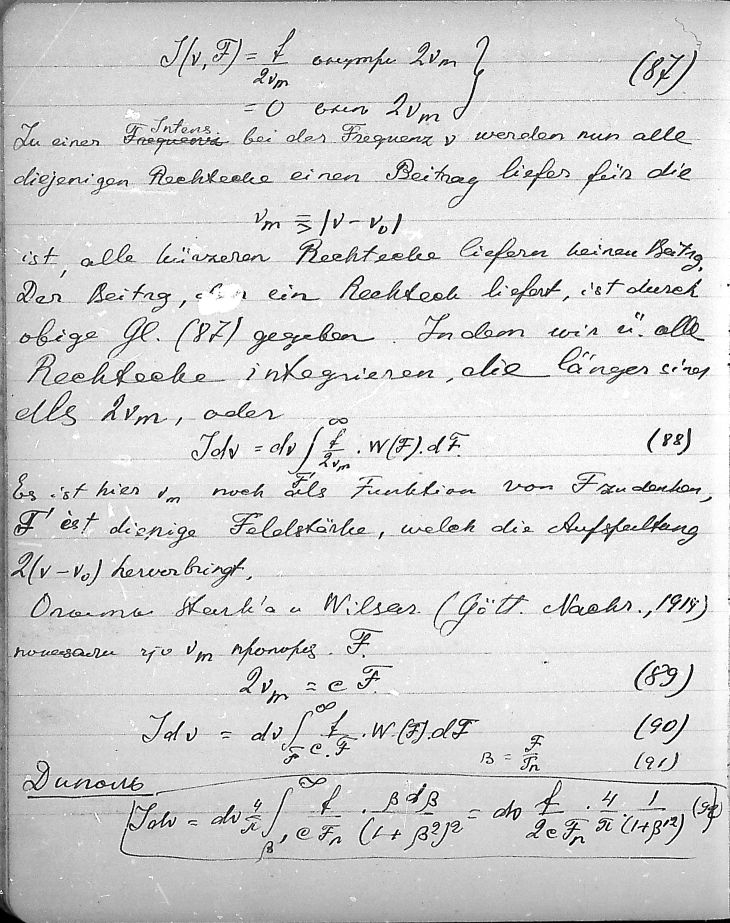 J(ν, F) = f/2ν_m внутри 2ν_m }
= 0 вне 2ν_m } (87)
Zu einer Intens. bei der Frequenz ν werden nun alle
diejenigen Rechtecke einen Beitrag liefer für die
ν_m ≧ |ν − ν_0|
ist, alle kürzeren Rechtecke liefern keinen Beitrg.
Der Beitrg, den ein Rechteck liefert, ist durch
obige Gl. (87) gegeben. Indem wir ü. alle
Rechtecke integrieren, die länger sind
als 2ν_m, oder
Jdν = dν ∫_{F'}^∞ f/2ν_m · W(F).dF. (88)
Es ist hier ν_m noch als Funktion von F zu denken,
F' ist dienige Feldstärke, welch die Aufspaltung
2(ν − ν_0) hervorbringt.
Опыты Stark'а и Wilsar (Gött. Nachr.,
показали что ν_m пропорц. F.
2ν_m = c F. (89)
Jdν = dν ∫_{F'}^∞ f/c.F · W(F).dF (90)
β = F/F_n (91)
Диполь
Jdν = dν 4/π ∫_{β'}^∞ f/cF_n · βdβ/(1+β²)² = dν f/2cF_n · 4/π · 1/(1+β'²) (92)